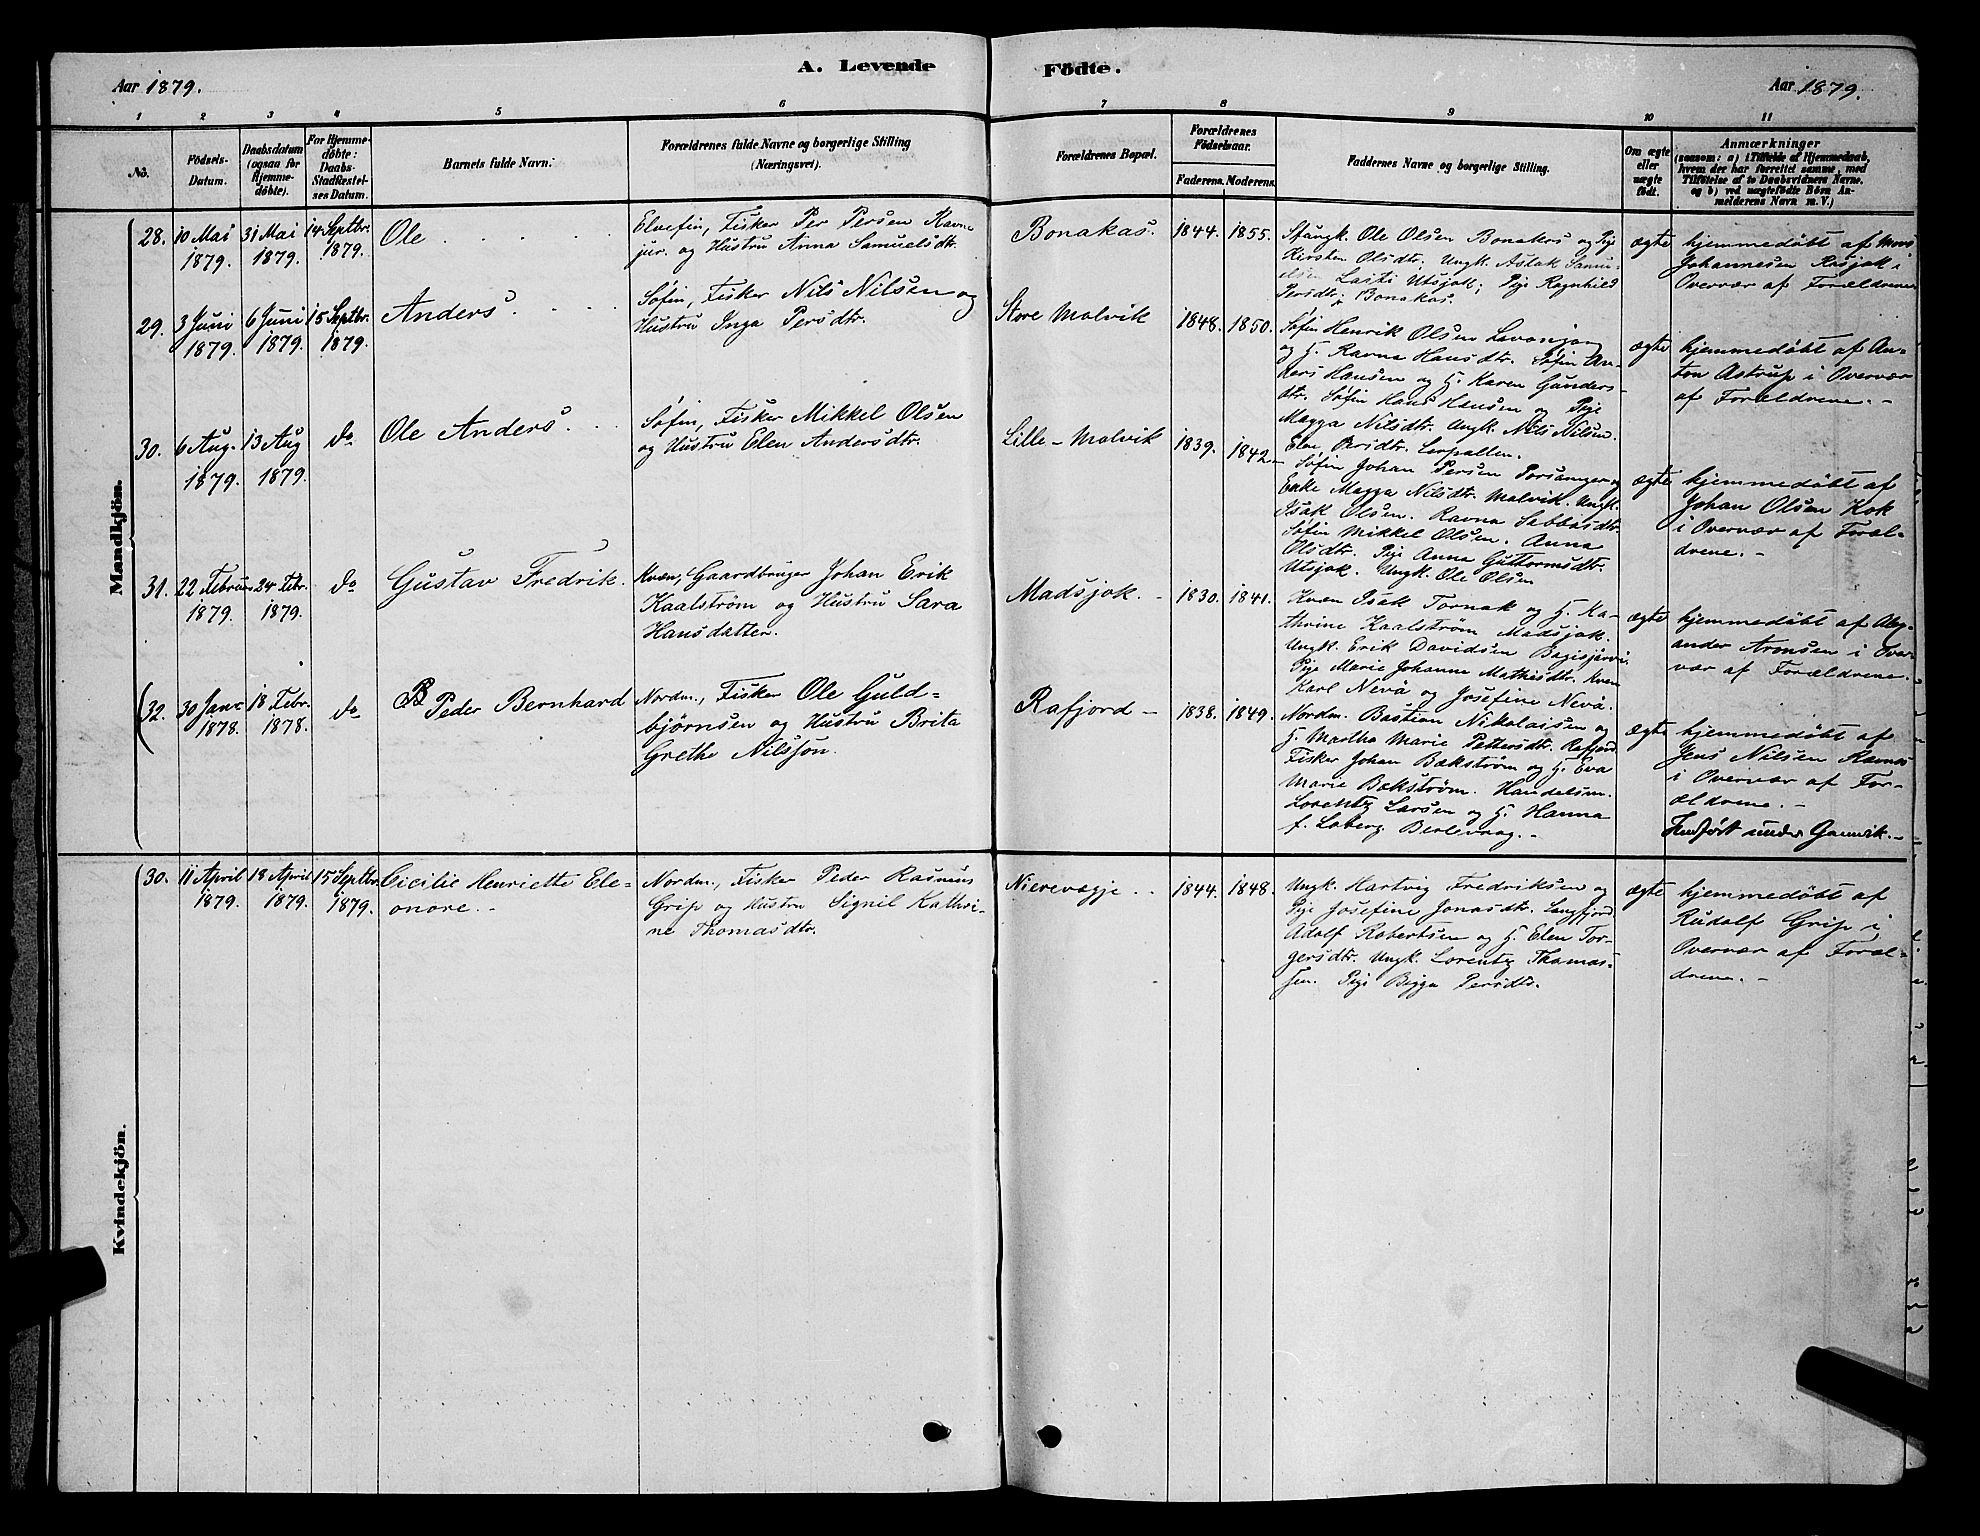 Aar 1879.
A. Levende
Födte.
Aar 1879.
1 2 3 4 5 6 7 8 9 10 11
No.
Födsels-
Datum.
Daabsdatum
(ogsaa for
Hjemme-
döbte).
For Hjemme-
döbte:
Daabs-
Stadfæstel-
ses Datum.
Barnets fulde Navn.
Forældrenes fulde Navne og borgerlige Stilling
(Næringsvei).
Forældrenes Bopæl.
Forældrenes
Födselsaar.
Faderens. Moderens.
Faddernes Navne og borgerlige Stilling.
Om ægte
eller
uægte
födt.
Anmærkninger
(saasom: a) i Tilfælde af Hjemmedaab,
hvem der har forrettet samme, med
Tilföielse af to Daabsvidners Navne,
og b) ved uægtefödte Börn An-
melderens Navn m. V.)
Mandkjön.
28.
10 Mai
1879.
31 Mai
1879.
14 Septbr.
1879.
Ole
Elvefin, Fisker Per Persen Ravna
jur. og Hustru Anna Samuelsdtr.
Bonakas.
1844. 1855.
Ole Olsen Bonakas og Pige
Kirsten Olsdtr. Ungk. Aslak Samu-
elsen Lasti Utsjok; Pige Ragnhild
Persdtr; Bonakas.
ægte
hjemmedøbt af Mons
Johannesen Rasjok i
Overvær af Forældrene
29.
3 Juni
1879.
6 Juni
1879.
15 Septbr.
1879.
Anders.
Søfin, Fisker Nils Nilsen og
Hustru Inga Persdtr.
Store Molvik
1848. 1850.
Søfin Henrik Olsen
og H. Ravna Hansdtr. Søfin An-
ders Hansen og H. Karen Gunders-
dtr. Søfin Hans Hansen og Pige
Magga Nilsdtr. Ungk. Nils Nilsen.
Elen Persdtr.
ægte
hjemmedøbt af An-
ton Astrup i Overvær
af Forældrene. -
30.
6 Aug.
1879.
13 Aug
1879.
do
Ole Anders.
Søfin, Fisker Mikkel Olsen
og Hustru Elen Andersdtr.
Lille-Molvik
1839. 1842.
Søfin Johan Persen Porsanger og
Enke Magga Nilsdtr. Molvik. Ungk.
Isak Olsen. Ravna Sabbasdtr.
Søfin Mikkel Olsen. Anna
Olsdtr. Pige Anna Guttormsdtr.
Utsjok. Ungk. Ole Olsen
ægte
hjemmedøbt af
Johan Olsen Kok
i Overvær af Foræl-
drene. -
31.
22 Februar
1879.
24 Febr.
1879.
do
Gustav Fredrik.
Kvæn, Gaardbruger Johan Erik
Kaalstrøm og Hustru Sara
Hansdatter.
Madsjok. -
1830. 1841.
Kvæn Isak Tornak og H. Ka-
thrine Kaalstrøm Madsjok.
Ungk. Erik Davidsen Bagisjarvi
Pige Marie Johanne Mathisdtr. Kvæn
Karl Nevä og Josefine Nevä.
ægte
hjemmedøbt af Alex-
ander Aronsen i Over-
vær af Forældrene.
32.
30 Jan.
1878.
18 Febr.
1878.
do
Peder Bernhard
Nordm., Fisker Ole Guld-
bjørnsen og Hustru Brita
Grethe Nilssøn.
Rafjord -
1838. 1849.
Nordm. Bastian Nikolaisen og
H. Martha Marie Pettersdtr. Rafjord
Fisker Johan Bækstrøm og H. Eva
Marie Bækstrøm. Handelsm.
Lorentz Larsen og H. Hanna
f. Loberg Berlevaag. -
ægte
hjemmedøbt af
Jens Nilsen
i Overvær af For-
ældrene. -
Indført under Gamvik. -
Kvindekjön.
30.
11 April
1879.
18 April
1879.
15 Septbr.
1879.
Cicilie Henriette Ele-
onore. -
Nordm., Fisker Peder Rasmus
Grip og Hustru Signil Kathri-
ne Thomasdtr.
Nierevagje
1844. 1848.
Ungk. Hartvig Fredriksen og
Pige Josefine Jonasdtr. Langfjord.
Adolf Robertsen og H. Elen Tor-
gersdtr. Ungk. Lorentz Thomas-
sen. Pige Bigga Persdtr.
ægte
hjemmedøbt af
Rudolf Grip i
Overvær af Foræl-
drene. -